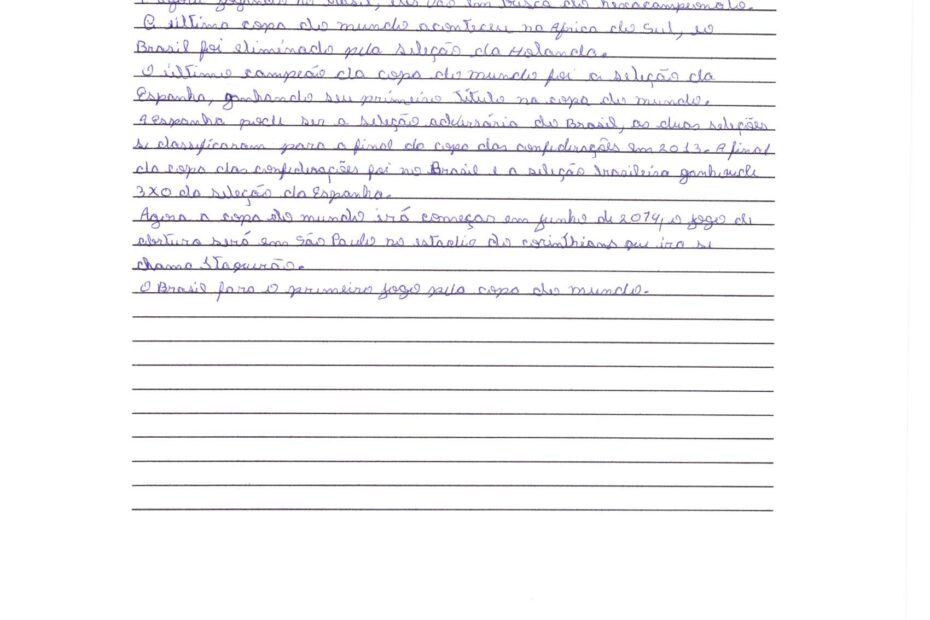 E agora jogando no Brasil, eles vão em busca do hexacampeonato.
A última copa do mundo aconteceu na Africa do Sul, eo
Brasil foi eliminado pela seleção da Holanda.
O último campeão da copa do mundo foi a seleção da
Espanha, ganhando seu primeiro Título na copa do mundo.
A Espanha pode ser a seleção adversária do Brasil, as duas seleções
se classificaram para a final da copa das confederações em 2013. A final
da copa das confederações foi no Brasil e a seleção brasileira ganhou de
3X0 da seleção da Espanha.
Agora a copa do mundo irá começar em junho de 2014, o jogo de
abertura será em São Paulo no estadio do corinthians que ira se
chama Itaquerão.
O Brasil fara o primeiro jogo pela copa do mundo.